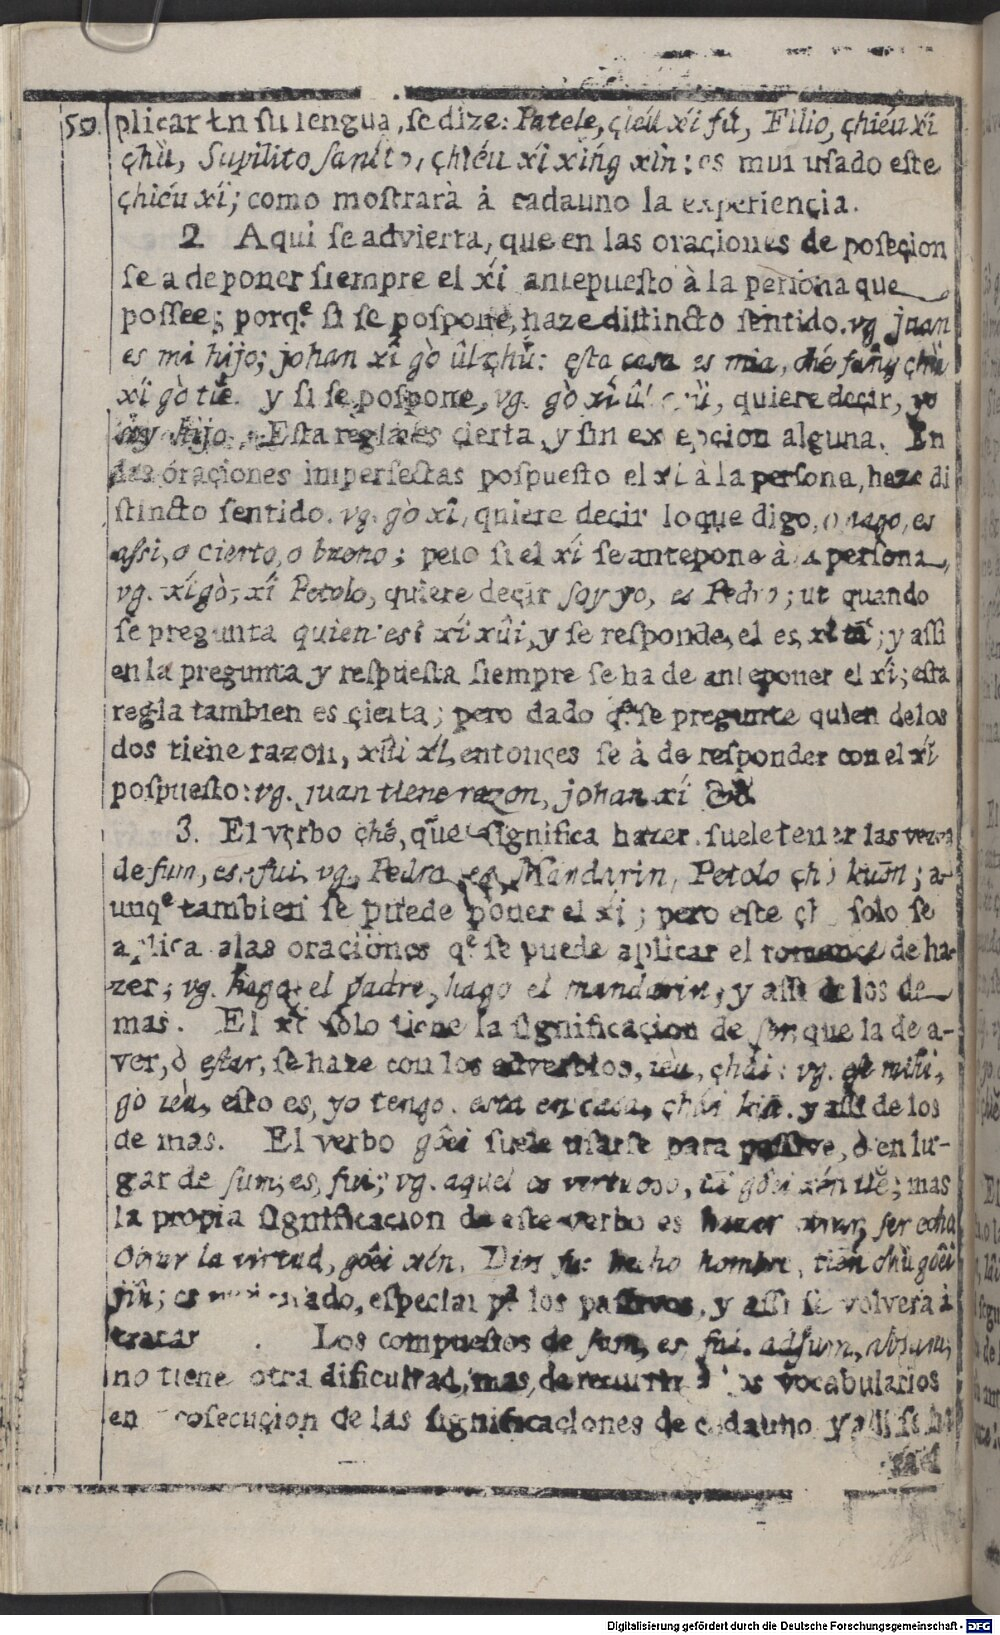 50. plicar en su lengua, se dize: Patele, çieú xí fú, Filio, chiéu xí
çhù, Supilito sancto, chiéu xí xińg xîn: es mui usado este
çhiéu xí; como mostrarà à cadauno la experiençia.
2 Aqui se advierta, que en las oraçiones de poseçion
se a de poner siempre el xí antepuesto à la persona que
possee; porq.e si se pospone, haze distincto sentido. vg juan
es mi hijo; johan xí gò ûl çhù: esta casa es mia, ché fang chù
xí gò tiě. y si se pospone, vg. gò xí ûl, quiere decir, yo
soy hijo. Esta regla es çierta, y sin exepcion alguna. En
las oraçiones imperfectas pospuesto el xí à la persona, haze di
stincto sentido. vg. gò xí, quiere decir lo que digo, o hago, es
assi, o cierto, o bueno; pero si el xí se antepone à la persona,
vg. xí gò, xí Petolo, quiere deçir soy yo, es Pedro; ut quando
se pregunta quien es? xí xûi, y se responde, el es, xí t'ā; y assi
en la pregunta y respuesta siempre se ha de anteponer el xí; esta
regla tambien es çierta; pero dado q.e se pregunte quien de los
dos tiene razon, xûi xí, entonçes se à de responder con el xí
pospuesto: vg. juan tiene razon, johan xí
3. El verbo çhó, que significa hazer, suele tener las veces
de sum, es, fui, vg. Pedro es Mandarin, Petolo çhó kuōn; a-
unq.e tambien se puede poner el xí; pero este çhó solo se
aplica a las oraçiones q.e se puede aplicar el romance de ha-
zer; vg. hago el padre, hago el mandarin, y assi de los de
mas. El xí solo tiene la significaçion de ser, que la de a-
ver, ò estar, se haze con los adverbios, ièu, çhái: vg.
gò ièu, esto es, yo tengo. esta en casa, çhái kiā. y assi de los
de mas. El verbo goêi suele usarse para passivo, ò en lu-
gar de sum, es, fui; vg. aquel es virtuoso, t'ā goêi xén tiě; mas
la propia significacion de este verbo es hazer ser echo
Obrar la virtud, goêi xén. Dios fue hecho hombre, tiēn chù goêi
jîn; es usado, especial p.a los passivos, y assi se volverà à
tratar. Los compuestos de sum, es, fui. adsum, absum,
no tiene otra dificultad, mas, de recurrir à los vocabularios
en prosecuçion de las significaciones de cadauno y assi se ha